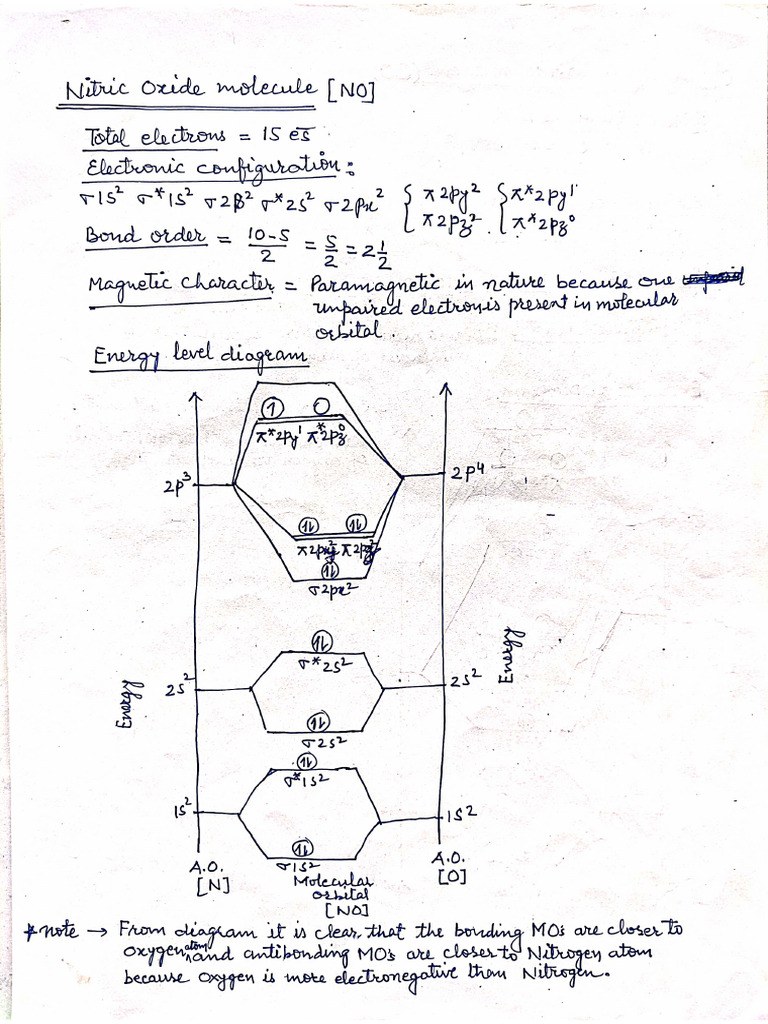 Nitric Oxide molecule [NO]
Total electrons = 15 es̄.
Electronic configuration:
σ1s² σ*1s² σ2s² σ*2s² σ2px² { π2py² { π*2py¹
π2pz² . π*2pz⁰
Bond order = 10-5/2 = 5/2 = 2 1/2
Magnetic character = Paramagnetic in nature because one
unpaired electron is present in molecular
orbital.
Energy level diagram
1 0
π*2py¹ π*2pz⁰
2p³ 2p⁴
⥮ ⥮
π2py² π2pz²
⥮
σ2px²
⥮
σ*2s²
2s² 2s²
Energy Energy
⥮
σ2s²
⥮
σ*1s²
1s² 1s²
⥮
σ1s²
A.O. A.O.
[N] [O]
Molecular
orbital
[NO]
*note → From diagram it is clear, that the bonding MO's are closer to
oxygen atom and antibonding MO's are closer to Nitrogen atom
because oxygen is more electronegative than Nitrogen.